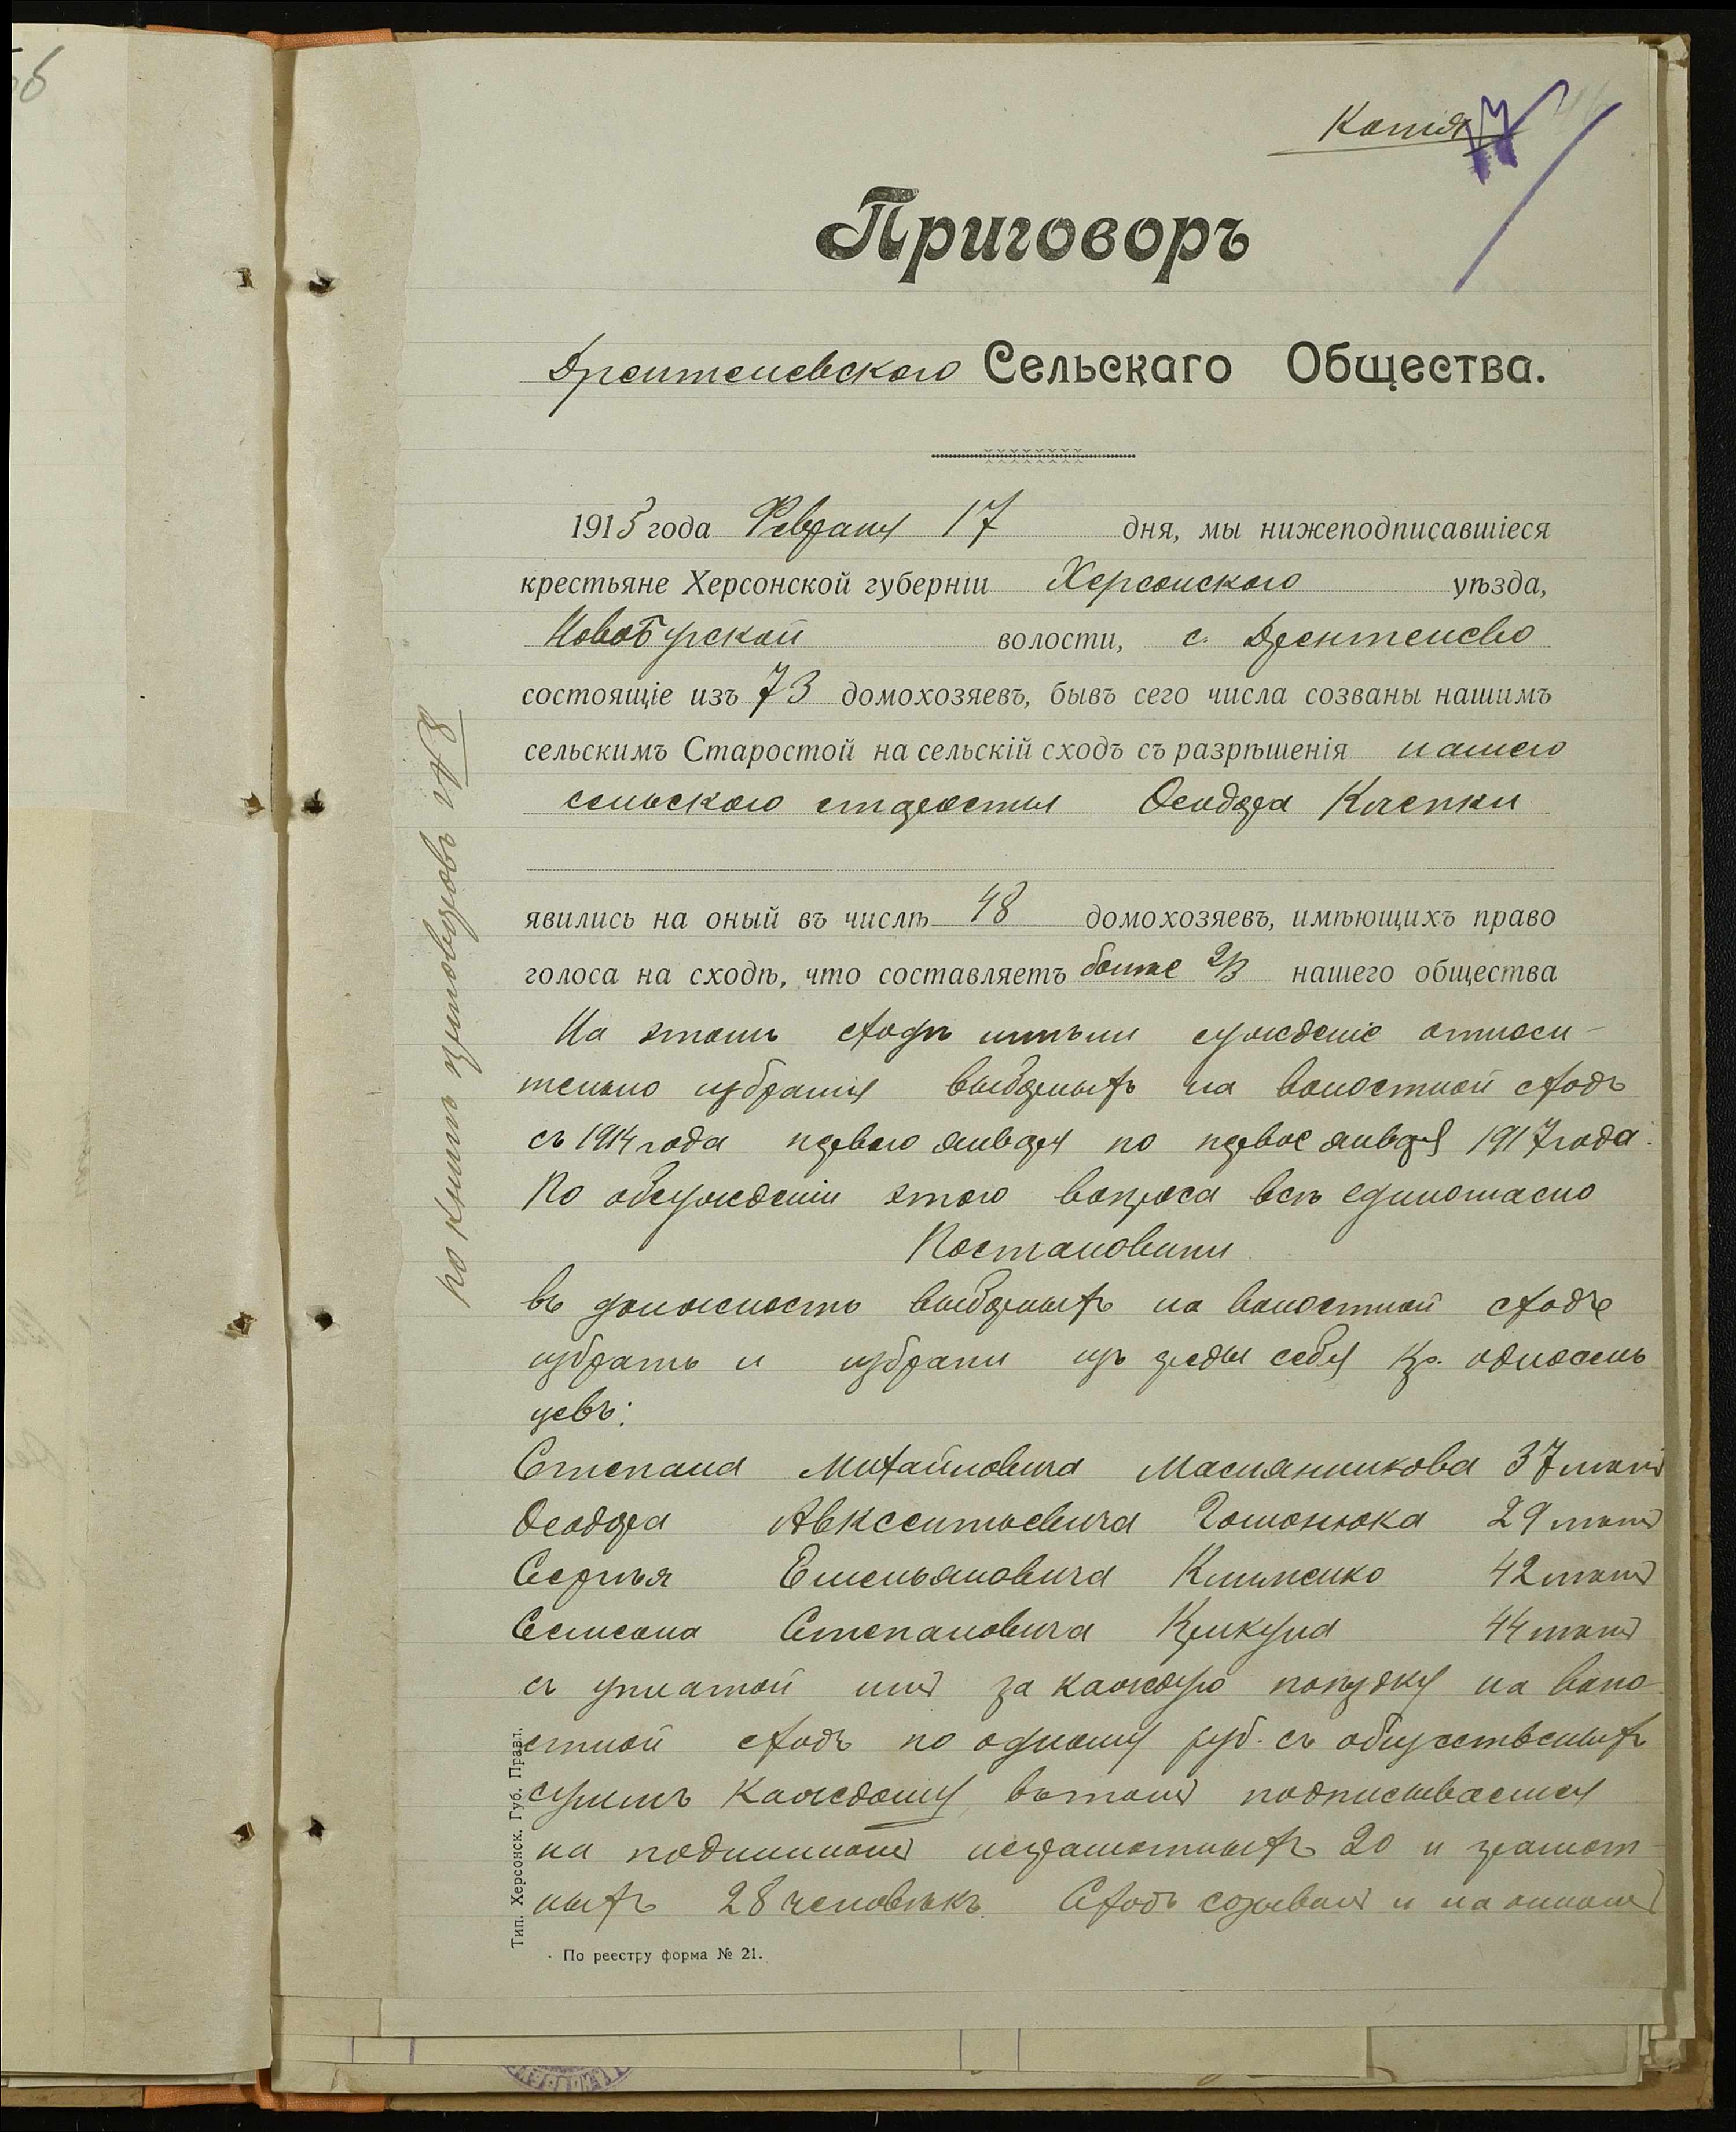 Копія
Приговоръ
Дрентеневского Сельскаго Общества.
1915 года Февраля 17 дня, мы нижеподписавшіеся
крестьяне Херсонской губерніи Херсонского уѣзда,
Новобугской волости, с. Дрентенево
состоящіе изъ 73 домохозяевъ, бывъ сего числа созваны нашимъ
сельскимъ Старостой на сельскій сходъ съ разрѣшенія нашего
сельского старосты Феодора
явились на оный въ числѣ 48 домохозяевъ, имѣющихъ право
голоса на сходѣ, что составляетъ более 2/3 нашего общества
На этомъ сходѣ имѣли сужденіе относи-
тельно избранія выборныхъ на волостной сходъ
съ 1914 года первого января по первое января 1917 года.
По обсужденіи этого вопроса всѣ единогласно
Постановили
въ должность выборныхъ на волостной сходъ
избрать и избрали изъ среды себя кр. односель
цевъ:
Степана Михайловича Маслянникова 37 лѣтъ
Феодора Авксентьевича Гомонюка 29 лѣтъ
Сергѣя Емельяновича Клименко 42 лѣтъ
Семена Степановича Крикуна 44 лѣтъ
съ уплатой имъ за каждую поѣздку на воло-
стной сходъ по одному руб. съ общественныхъ
суммъ каждому, въ томъ подписываемся
на подлинномъ неграмотныхъ 20 и грамот-
ныхъ 28 человѣкъ. Сходъ созывалъ и на ономъ
По книгѣ приговоровъ № 8
Тип. Херсонск. Губ. Правл.
По реестру форма № 21.